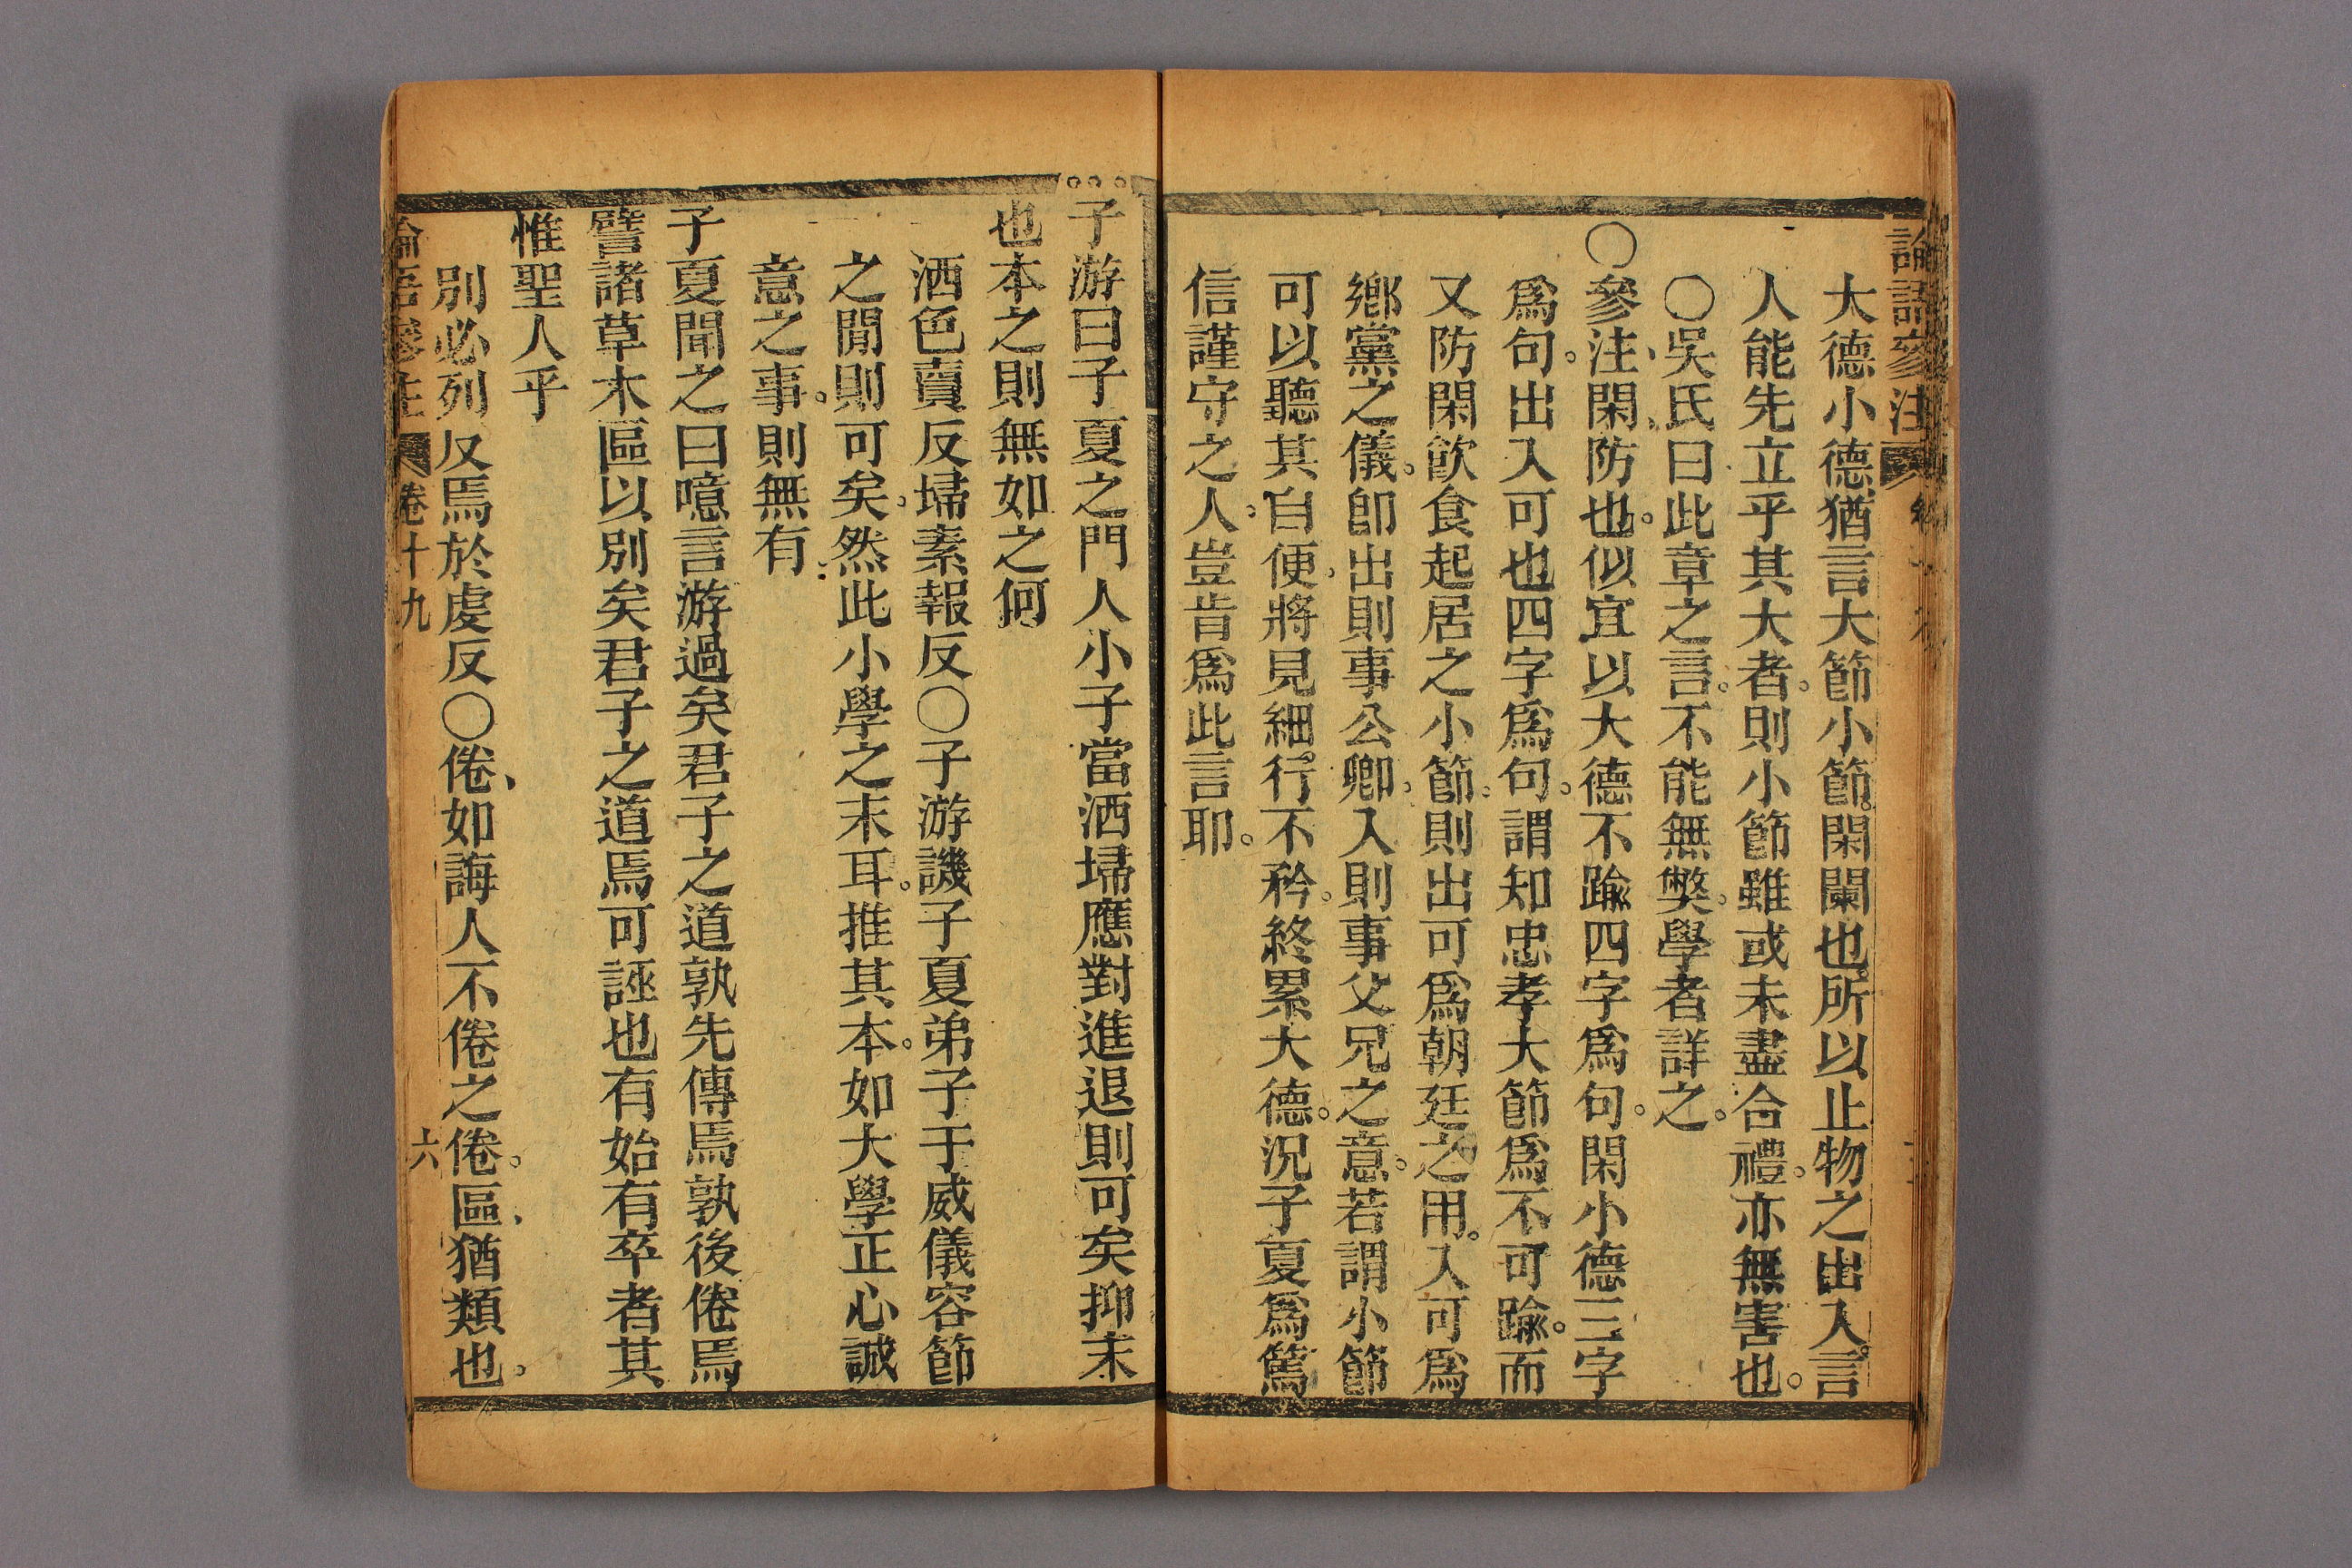 論語參注
大德小德、猶言大節小節。閑闌也。所以止物之出入。言
人能先立乎其大者。則小節雖或未盡合禮。亦無害也。
〇吳氏曰此章之言。不能無獘。學者詳之。
〇參注、閑、防也。似宜以大德不踰四字爲句。閑小德三字
爲句。出入可也四字爲句。謂知忠孝大節爲不可踰。而
又防閑飮食起居之小節。則出可爲朝廷之用。入可爲
鄉黨之儀。卽出則事公卿。入則事父兄之意。若謂小節
可以聽其自便。將見細行不矜。終累大德。況子夏爲篤
信謹守之人。豈肯爲此言耶。
子游曰子夏之門人小子當洒埽應對進退則可矣抑末
也本之則無如之何
洒色賣反埽素報反〇子游譏子夏弟子于威儀容節
之閒則可矣。然此小學之末耳。推其本。如大學正心誠
意之事。則無有
子夏聞之曰噫言游過矣君子之道孰先傳焉孰後倦焉
譬諸草木區以別矣君子之道焉可誣也有始有卒者其
惟聖人乎
別必列反焉於虔反〇倦、如誨人不倦之倦。區、猶類也。
論語參注 卷十九 六